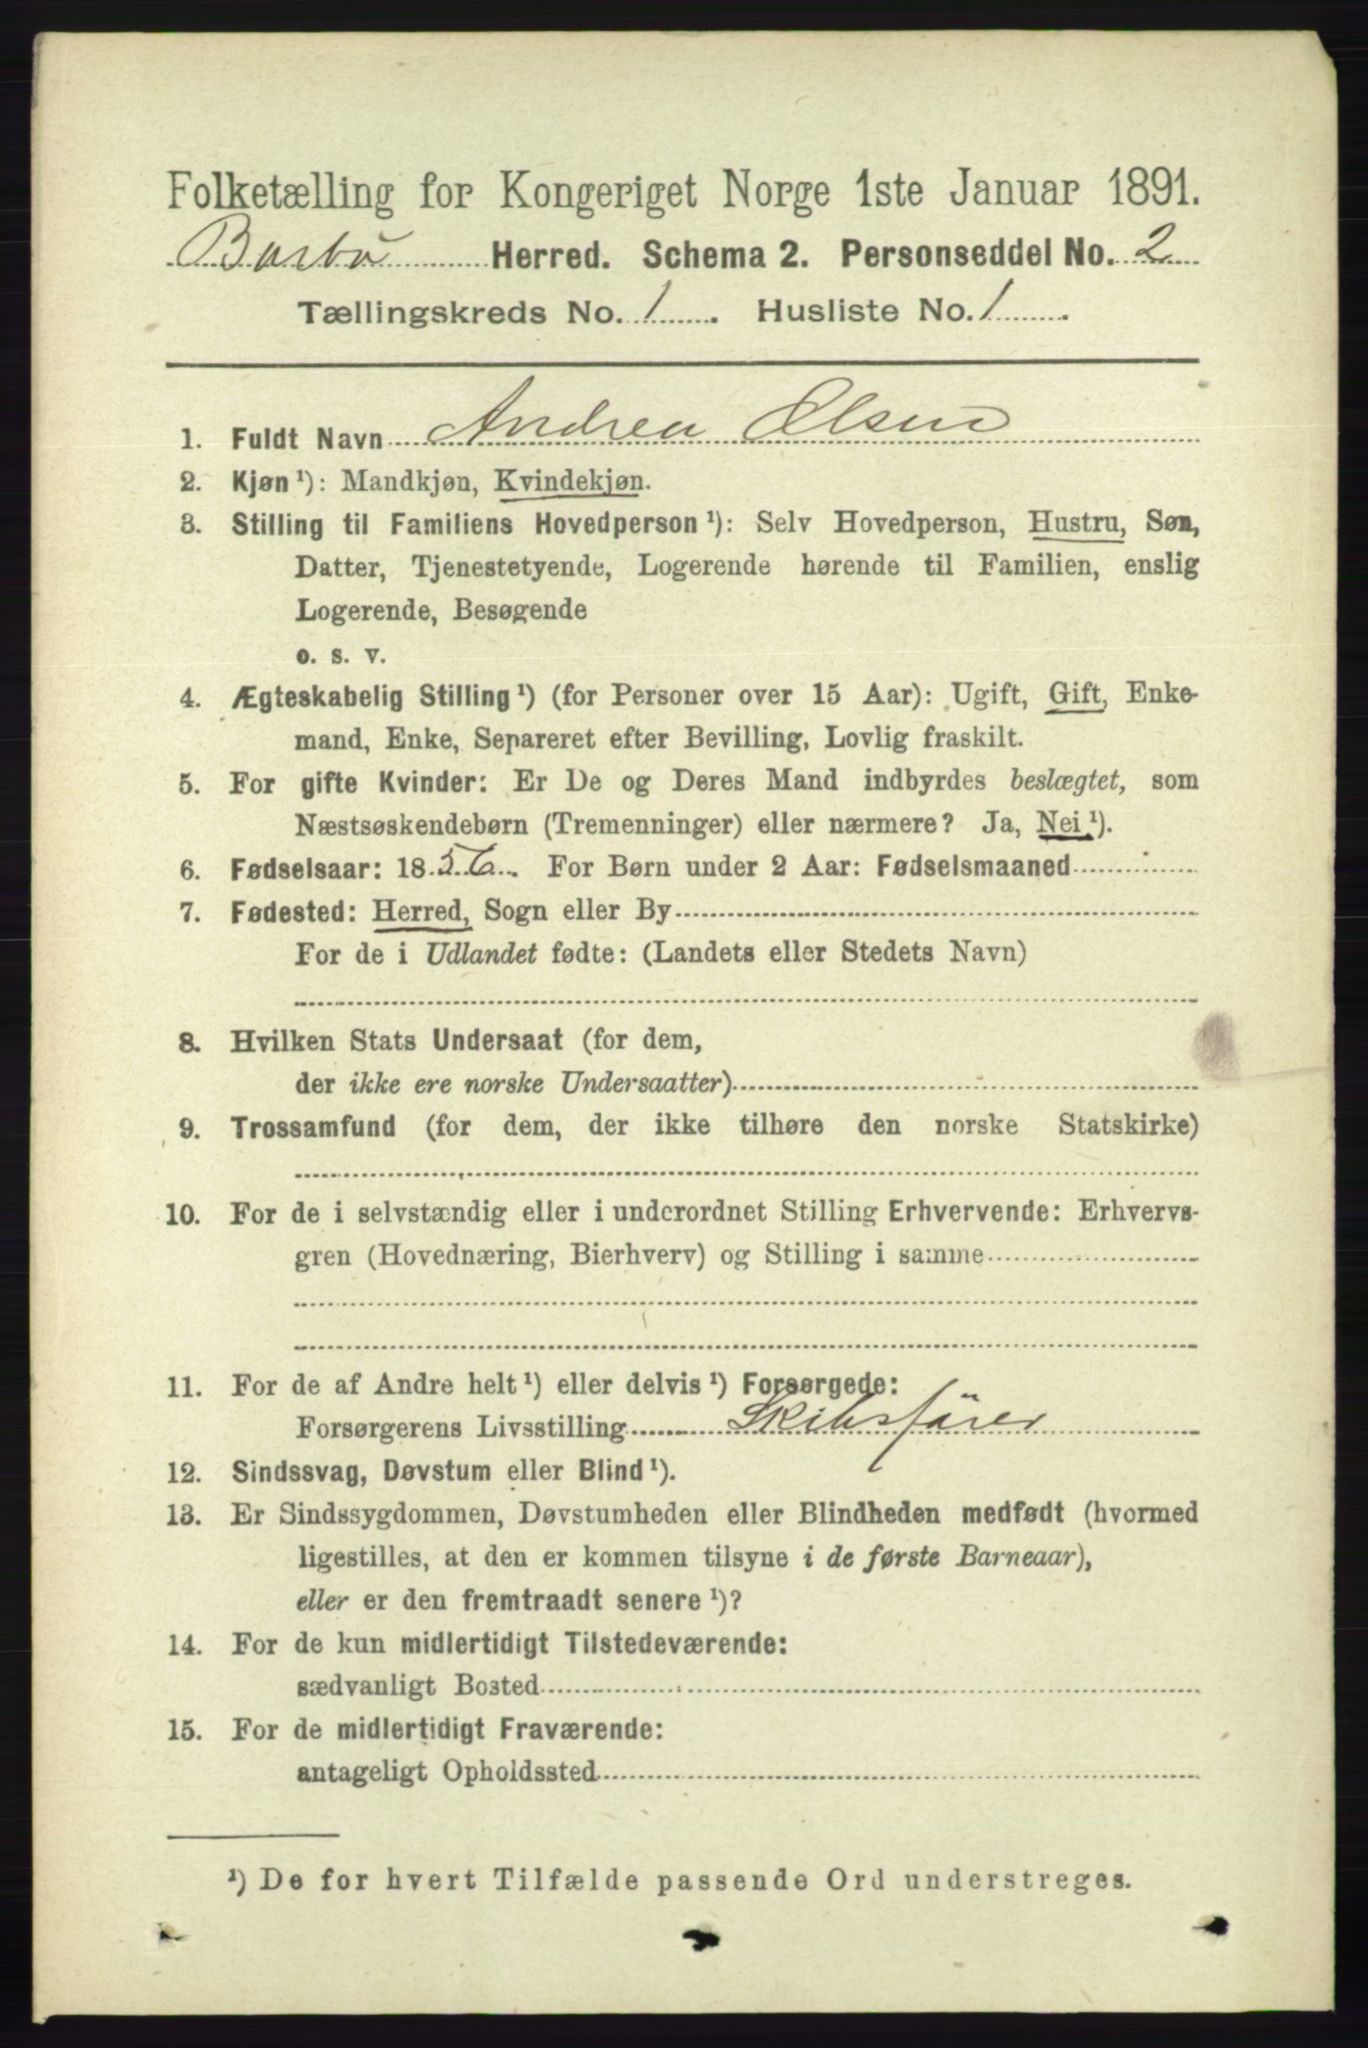 Folketælling for Kongeriget Norge 1ste Januar 1891.
Barbo Herred. Schema 2. Personseddel No. 2
Tællingskreds No. 1. Husliste No. 1.
1. Fuldt Navn Andrea Olsen
2. Kjøn ¹): Mandkjøn, Kvindekjøn.
3. Stilling til Familiens Hovedperson ¹): Selv Hovedperson, Hustru, Søn,
Datter, Tjenestetyende, Logerende hørende til Familien, enslig
Logerende, Besøgende
o. s. v.
4. Ægteskabelig Stilling ¹) (for Personer over 15 Aar): Ugift, Gift, Enke-
mand, Enke, Separeret efter Bevilling, Lovlig fraskilt.
5. For gifte Kvinder: Er De og Deres Mand indbyrdes beslægtet, som
Næstsøskendebørn (Tremenninger) eller nærmere? Ja, Nei ¹).
6. Fødselsaar: 1856. For Børn under 2 Aar: Fødselsmaaned
7. Fødested: Herred, Sogn eller By
For de i Udlandet fødte: (Landets eller Stedets Navn)
8. Hvilken Stats Undersaat (for dem,
der ikke ere norske Undersaatter)
9. Trossamfund (for dem, der ikke tilhøre den norske Statskirke)
10. For de i selvstændig eller i underordnet Stilling Erhvervende: Erhvervs-
gren (Hovednæring, Bierhverv) og Stilling i samme
11. For de af Andre helt ¹) eller delvis ¹) Forsørgede:
Forsørgerens Livsstilling Skibsförer
12. Sindssvag, Døvstum eller Blind ¹).
13. Er Sindssygdommen, Døvstumheden eller Blindheden medfødt (hvormed
ligestilles, at den er kommen tilsyne i de første Barneaar),
eller er den fremtraadt senere ¹)?
14. For de kun midlertidigt Tilstedeværende:
sædvanligt Bosted
15. For de midlertidigt Fraværende:
antageligt Opholdssted
¹) De for hvert Tilfælde passende Ord understreges.